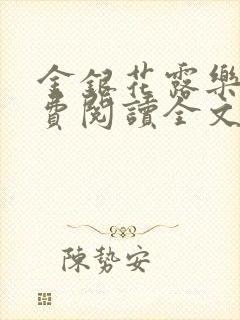 金銀花露樂
費閱讀全文
陳勢安